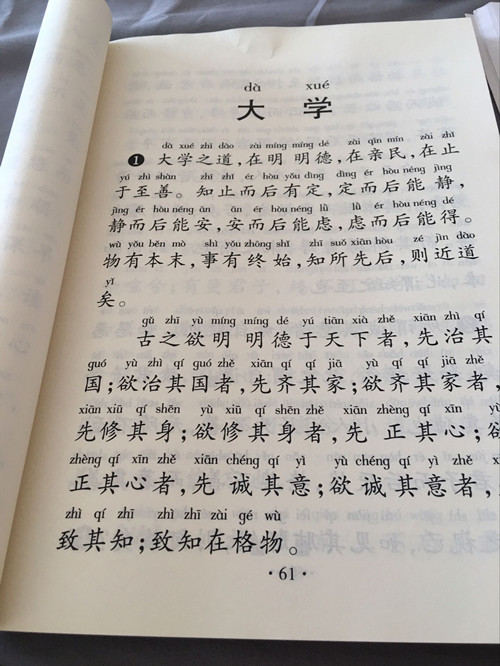 dà xué
大 学
dà xué zhī dào zài míng míng dé zài qīn mín zài zhǐ
❶ 大学之道，在明 明德，在亲民，在止
yú zhì shàn zhī zhǐ ér hòu yǒu dìng dìng ér hòu néng jìng
于至善。知止而后有定，定而后能 静，
jìng ér hòu néng ān ān ér hòu néng lǜ lǜ ér hòu néng dé
静而后能安，安而后能虑，虑而后能得。
wù yǒu běn mò shì yǒu zhōng shǐ zhī suǒ xiān hòu zé jìn dào
物有本末，事有终始，知所先后，则近道
yǐ
矣。
gǔ zhī yù míng míng dé yú tiān xià zhě xiān zhì qí
古之欲明 明德于天下者，先治其
guó yù zhì qí guó zhě xiān qí qí jiā yù qí qí jiā zhě
国；欲治其国者，先齐其家；欲齐其家者，
xiān xiū qí shēn yù xiū qí shēn zhě xiān zhèng qí xīn yù
先修其身；欲修其身者，先 正其心；欲
zhèng qí xīn zhě xiān chéng qí yì yù chéng qí yì zhě
正其心者，先 诚其意；欲诚其意者，
zhì qí zhī zhì zhī zài gé wù
致其知；致知在格物。
·61·